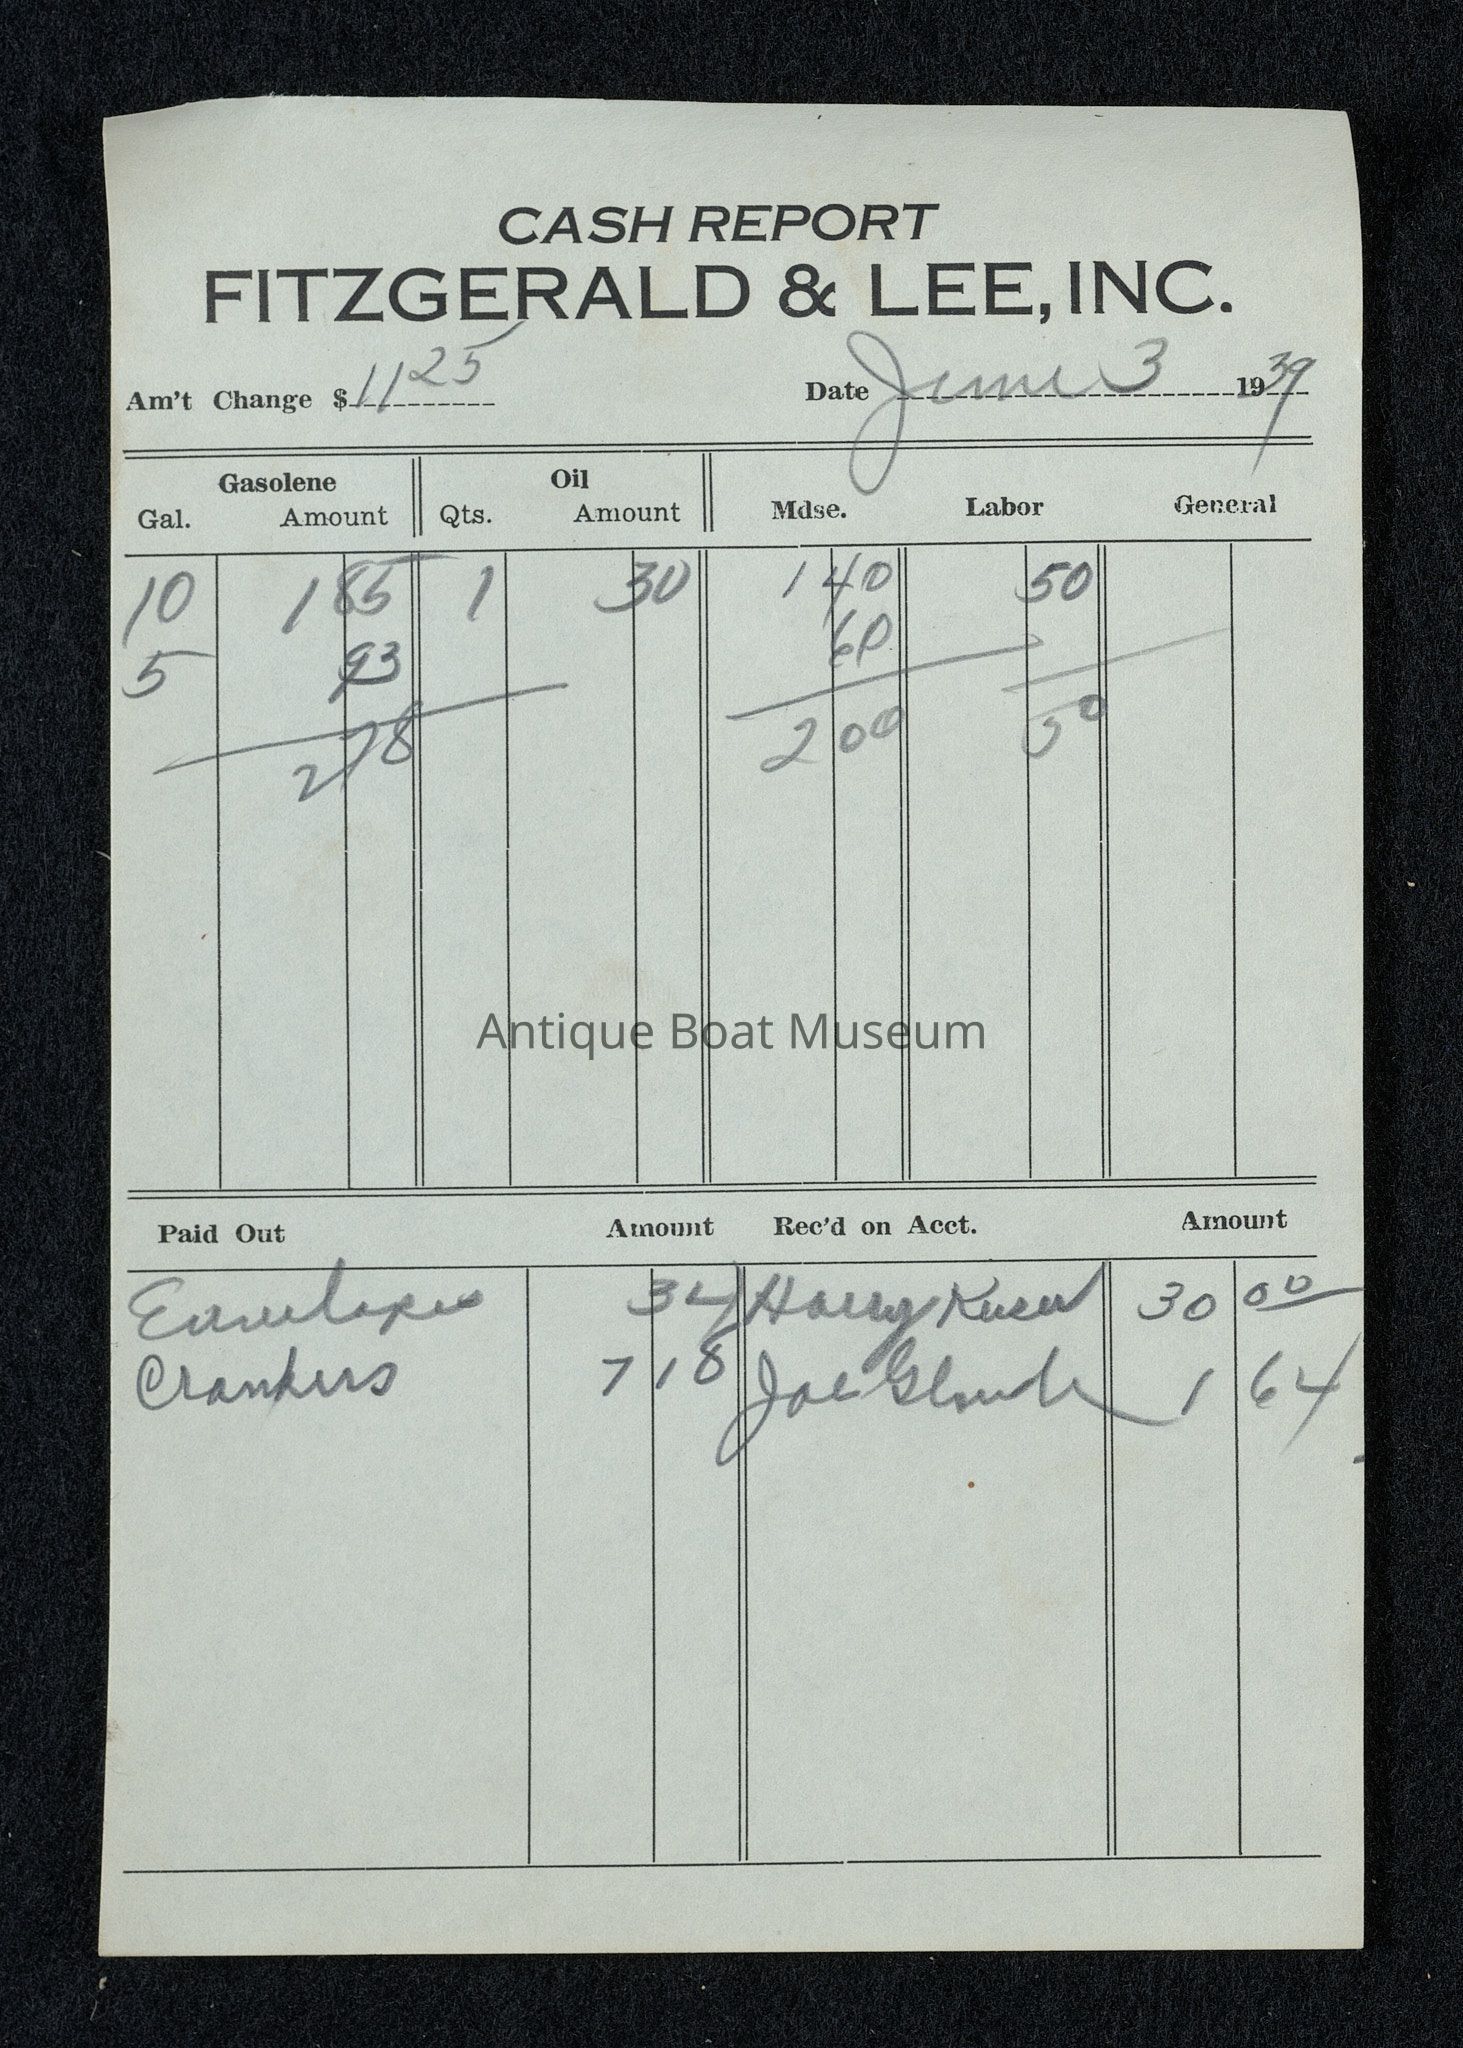 CASH REPORT
FITZGERALD & LEE, INC.
Am't Change $ 11 25 Date June 3 1939
Gasolene Oil
Gal. Amount Qts. Amount Mdse. Labor General
10 1 85 1 30 1 40 50
5 93 60
2 78 2 00 50
Antique Boat Museum
Paid Out Amount Rec'd on Acct. Amount
Envelopes 34 Harry 30 00
7 18 Joe 1 64